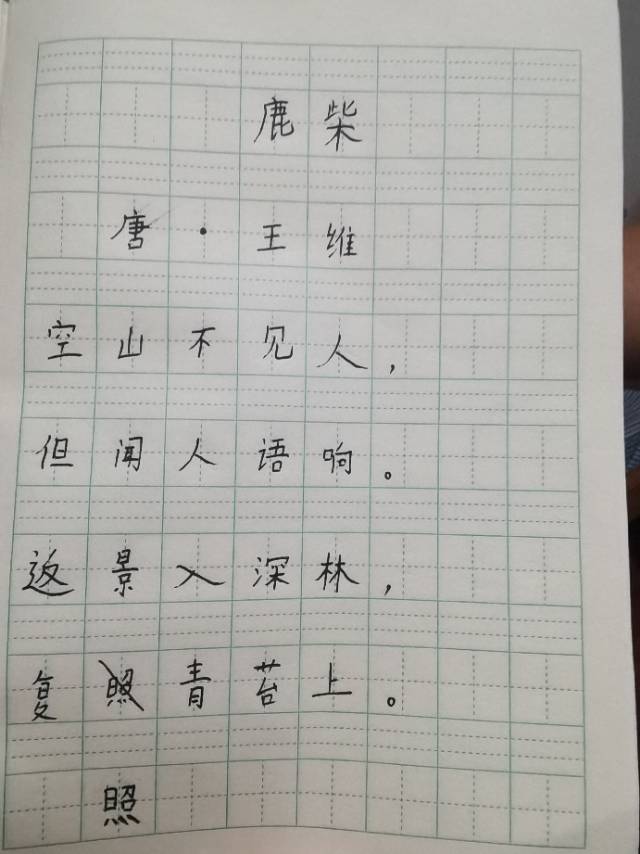 鹿柴
唐·王维
空山不见人，
但闻人语响。
返景入深林，
复照青苔上。
照